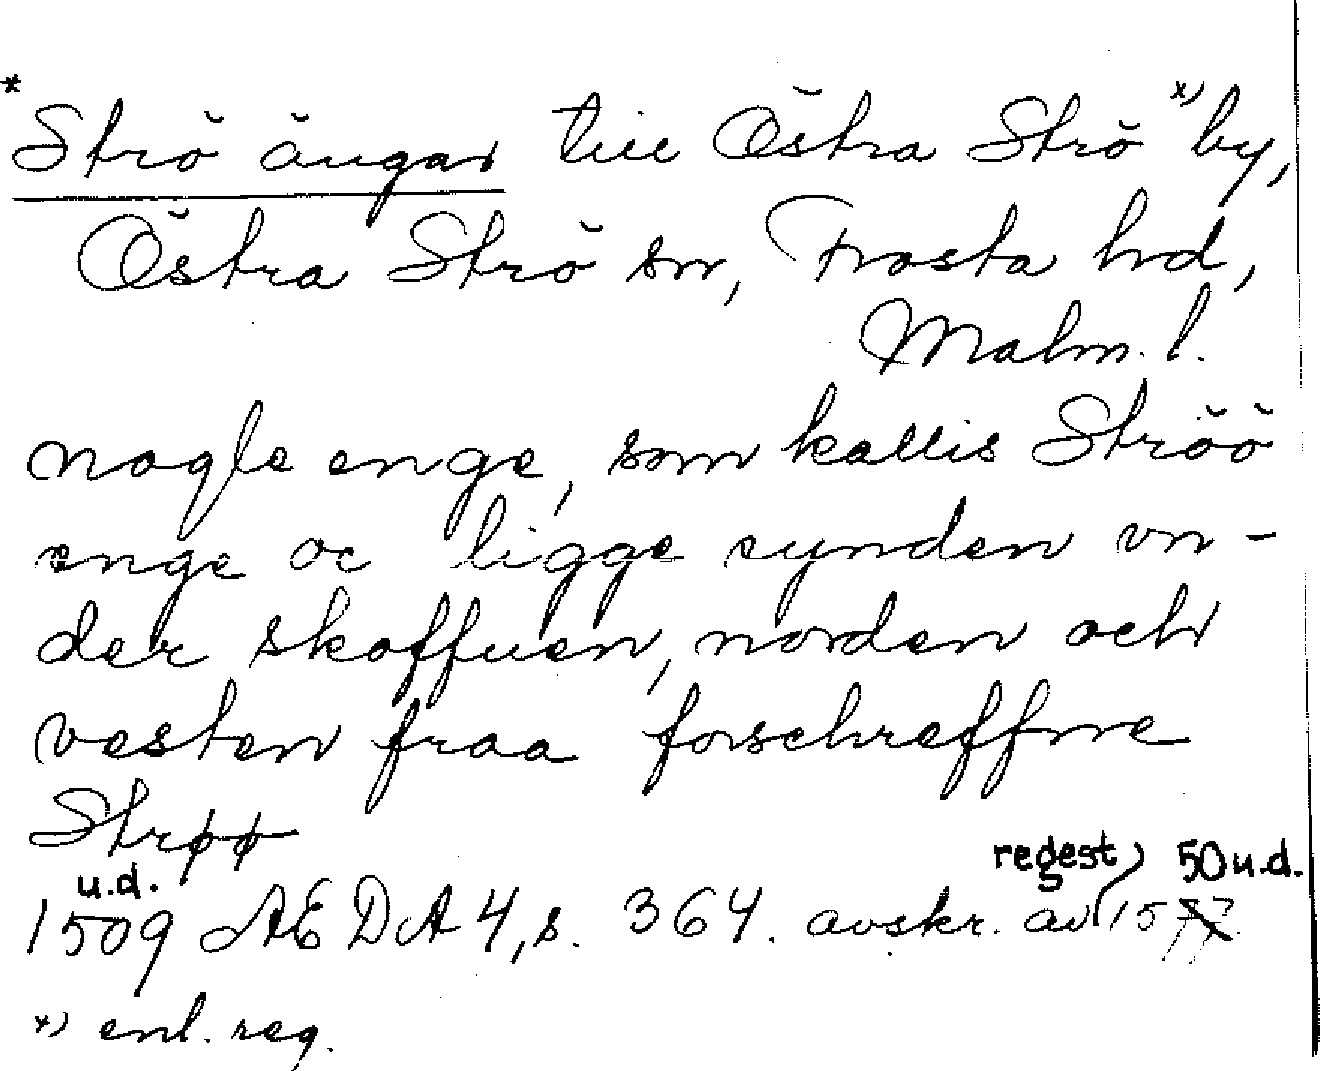 * Strö ängar till Östra Strö *) by,
Östra Strö sn, Frosta hd,
Malm. l.
nogle enge, som kallis Ströö
enge oc ligge synden vn-
der skoffuen, norden och
vesten fraa forschreffne
Strøø
u.d. regest) 50 u.d.
1509 ÆDA 4, s. 364. avskr. av 15
*) enl. reg.